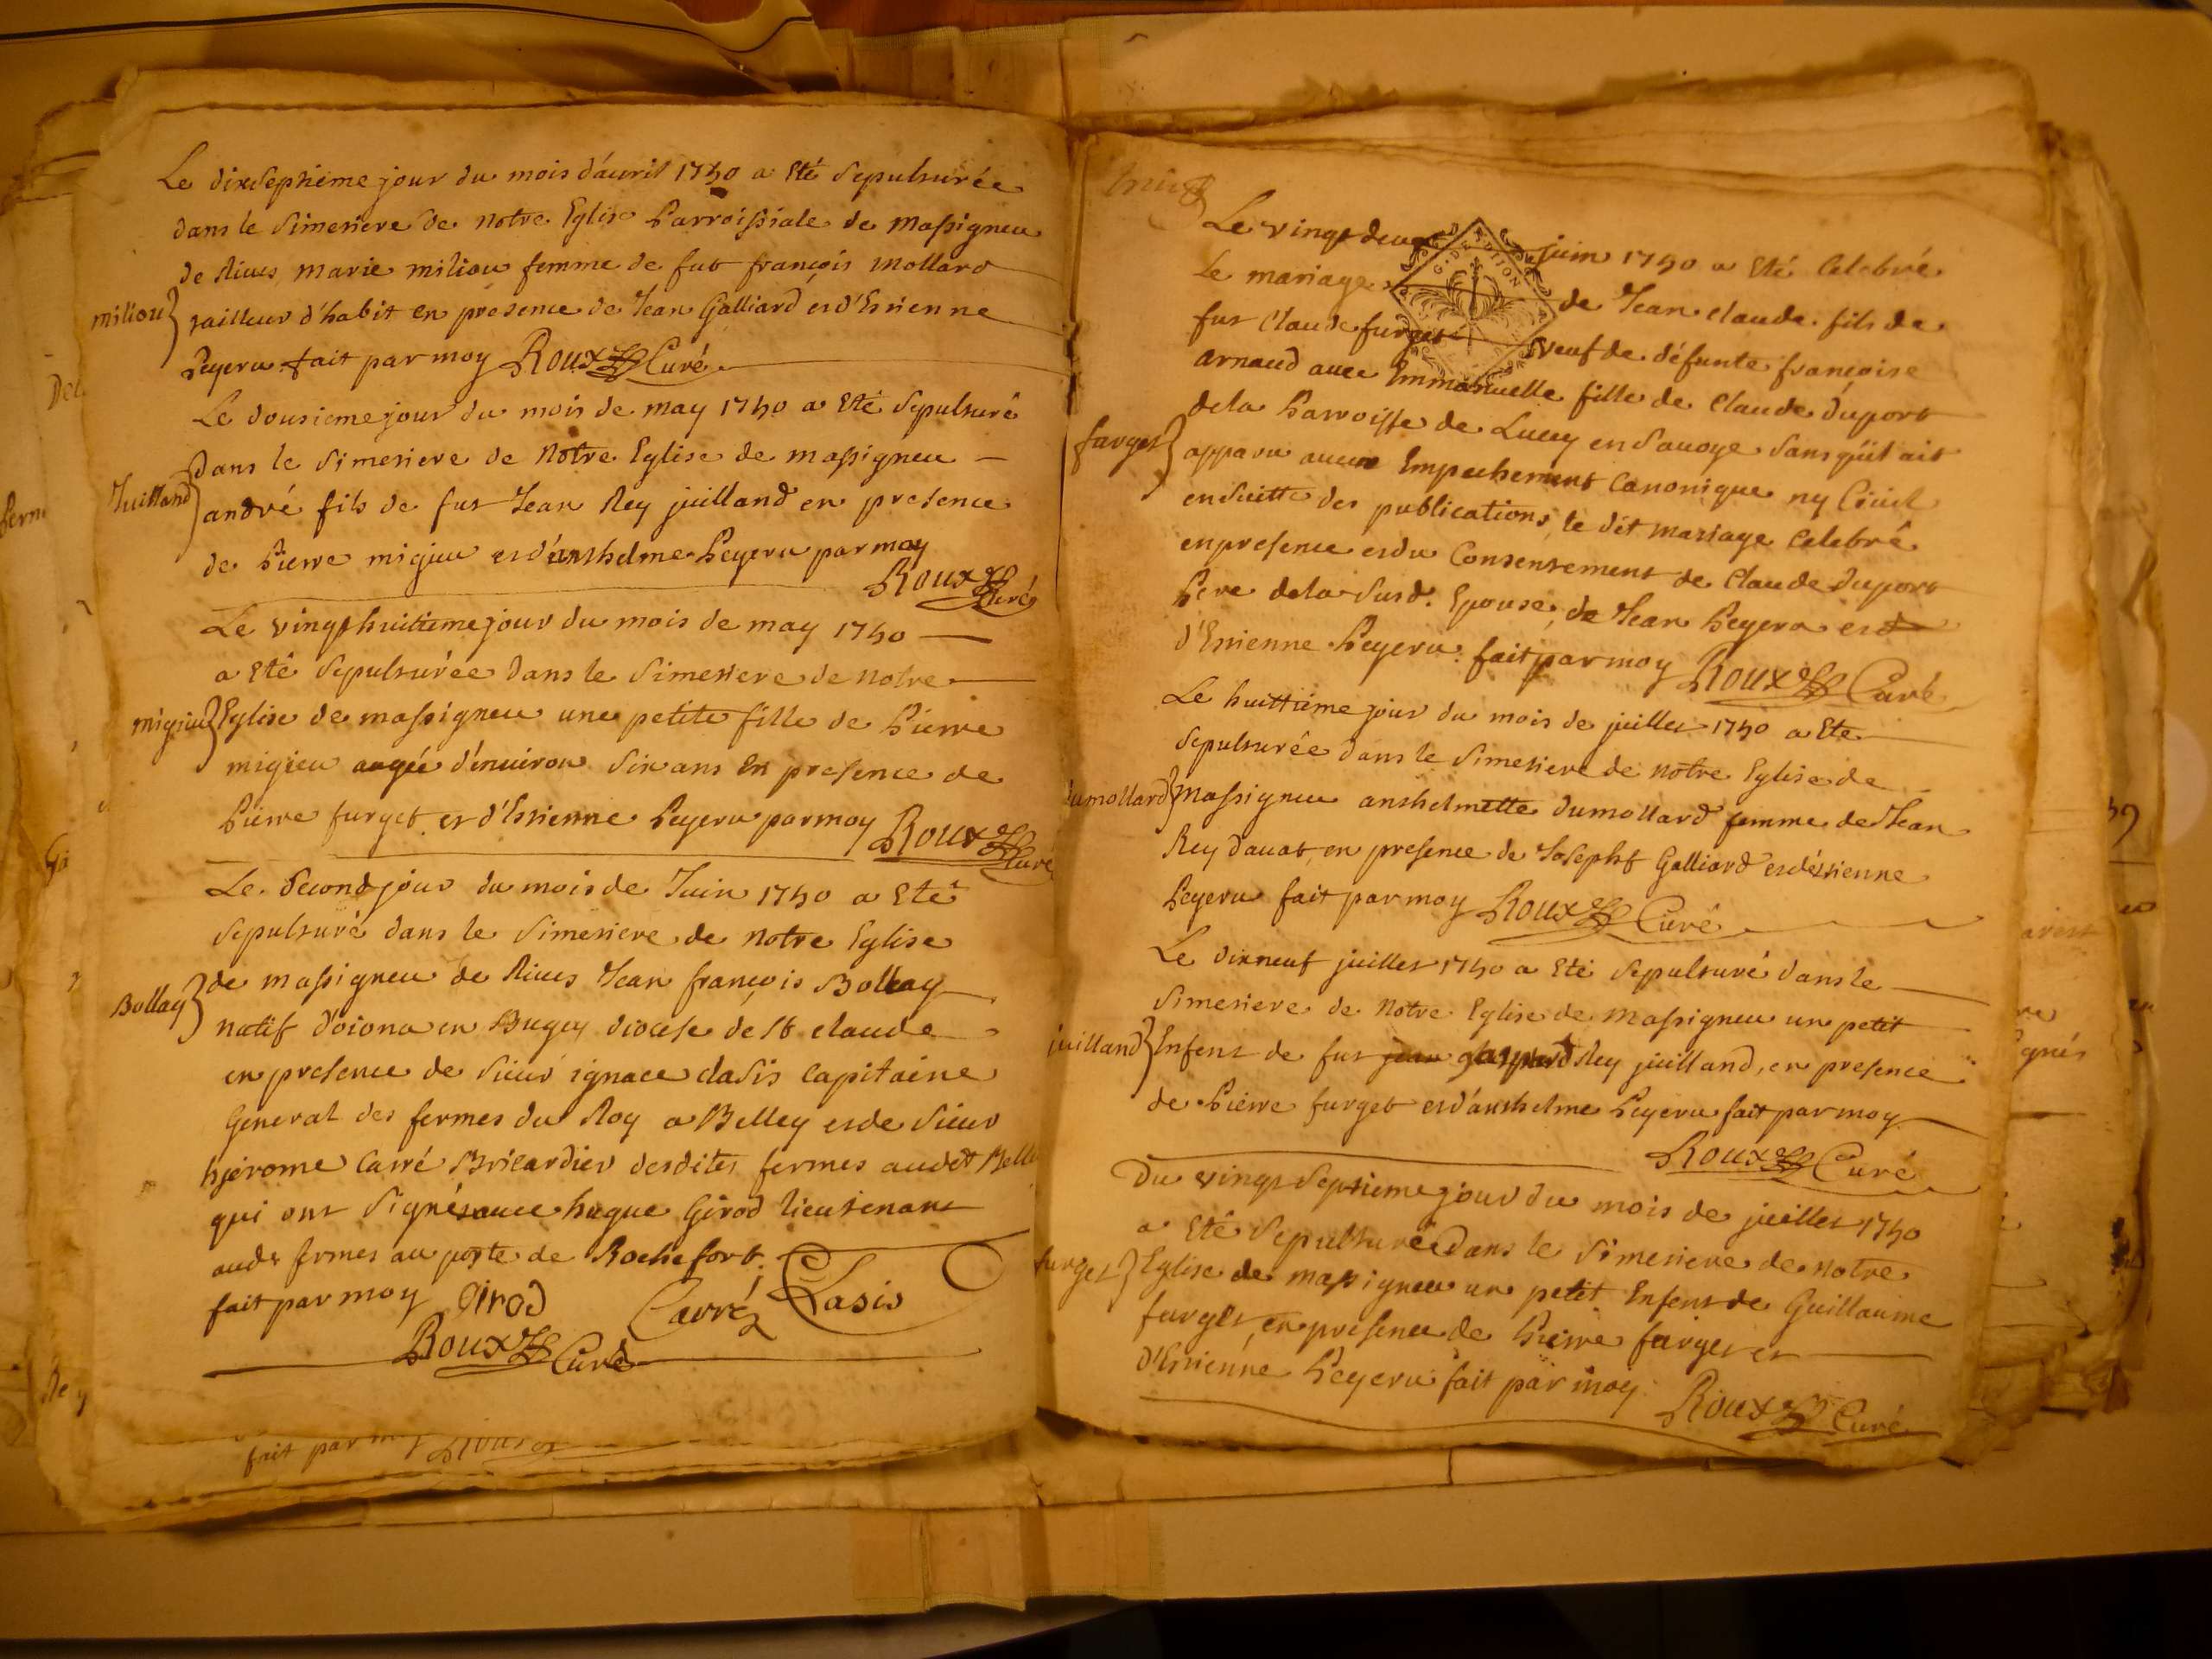 Le dixseptième jour du mois d'auril 1740 a Eté Sepulturée
dans le Simetiere de notre Eglise Parroissiale de Massigneu
de Riues, Marie miliou femme de fut françois Mollard
miliou
tailleur d'habit en presence de Jean Galliard et d'Etienne
Peyeru. fait par moy Roux Curé
Le dousieme jour du mois de may 1740 a Eté Sepulturé
dans le Simetiere de Notre Eglise de massigneu
Juilland
andré fils de fut Jean Rey juilland en presence
de Pierre migieu et d'anthelme Peyeru par moy
Roux Curé
Le vingt huitieme jour du mois de may 1740
a Eté Sepulturée dans le Simetiere de notre
migieu
Eglise de massigneu une petite fille de Pierre
migieu augée d'enuiron six ans En presence de
Pierre furget et d'Etienne Peyeru par moy Roux Curé
Le Second jour du mois de Juin 1740 a Eté
Sepulturé dans le Simetiere de notre Eglise
de massigneu de Riues Jean françois Bollay
Bollay
natif d'oiona en Bugey diocese de St claude
en presence de Sieur ignace clasis Capitaine
General des fermes du Roy a Belley et de Sieur
hjerome Carré Bricardier desdites fermes audet
qui ont Signés auec hugue Girod lieutenant
aud. fermes au poste de Rochefort.
fait par moy Girod Carré Clasis
Roux Curé
fait par moy Roux
Le vingt deux juin 1740 a Eté Celebré
Le mariage de Jean claude fils de
fut Claude furget veuf de défunte françoise
arnaud auec Emmanuelle fille de Claude Duport
dela Parroisse de Lucey en Sauoye Sans qu'il ait
furget
apparu aucun Empechement Canonique ny Ciuil
en Suitte des publications, le dit mariage Celebré
en presence et du Consentement de Claude Duport
Pere dela Susd. Epouse, de Jean Peyeru et
d'Etienne Peyeru. fait par moy Roux Curé
Le huittieme jour du mois de juillet 1740 a Ete
Sepulturée dans le Simetiere de notre Eglise de
dumollard
Massigneu anthelmette dumollard femme de Jean
Rey dauat, en presence de Josepht Galliard et d'étienne
Peyeru fait par moy Roux Curé
Le dixneuf juillet 1740 a Eté Sepulturé dans le
Simetiere de Notre Eglise de Massigneu un petit
juilland
Enfent de fut jean gaspard Rey juilland, en presence
de Pierre furget et d'anthelme Peyeru fait par moy
Roux Curé
Du vingt Septieme jour du mois de juillet 1740
a Eté Sepulturé Dans le Simetiere de notre
furget
Eglise de massigneu un petit Enfent de Guillaume
furget, en presence de Pierre furget et
d'Etienne Peyeru fait par moy
Roux Curé